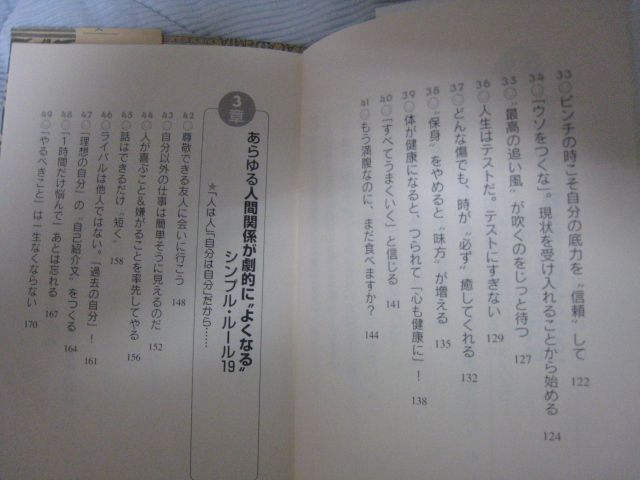 33 ピンチの時こそ自分の底力を〝信頼〟して 122
34 「ウソをつくな」。現状を受け入れることから始める 124
35 〝最高の追い風〟が吹くのをじっと待つ 127
36 人生はテストだ。テストにすぎない 129
37 どんな傷でも、時が〝必ず〟癒してくれる 132
38 〝保身〟をやめると〝味方〟が増える 135
39 体が健康になると、つられて「心も健康に」! 138
40 「すべてうまくいく」と信じる 141
41 もう満腹なのに、まだ食べますか? 144
3章
あらゆる人間関係が劇的に〝よくなる〟
シンプル・ルール19
★「人は人」「自分は自分」だから……
42 尊敬できる友人に会いに行こう 148
43 自分以外の仕事は簡単そうに見えるのだ 152
44 人が喜ぶこと&嫌がることを率先してやる 156
45 話はできるだけ〝短く〟 158
46 ライバルは他人ではない。「過去の自分」! 161
47 「理想の自分」の〝自己紹介文〟をつくる 164
48 「1時間だけ悩んで」あとは忘れる 167
49 「やるべきこと」は一生なくならない 170